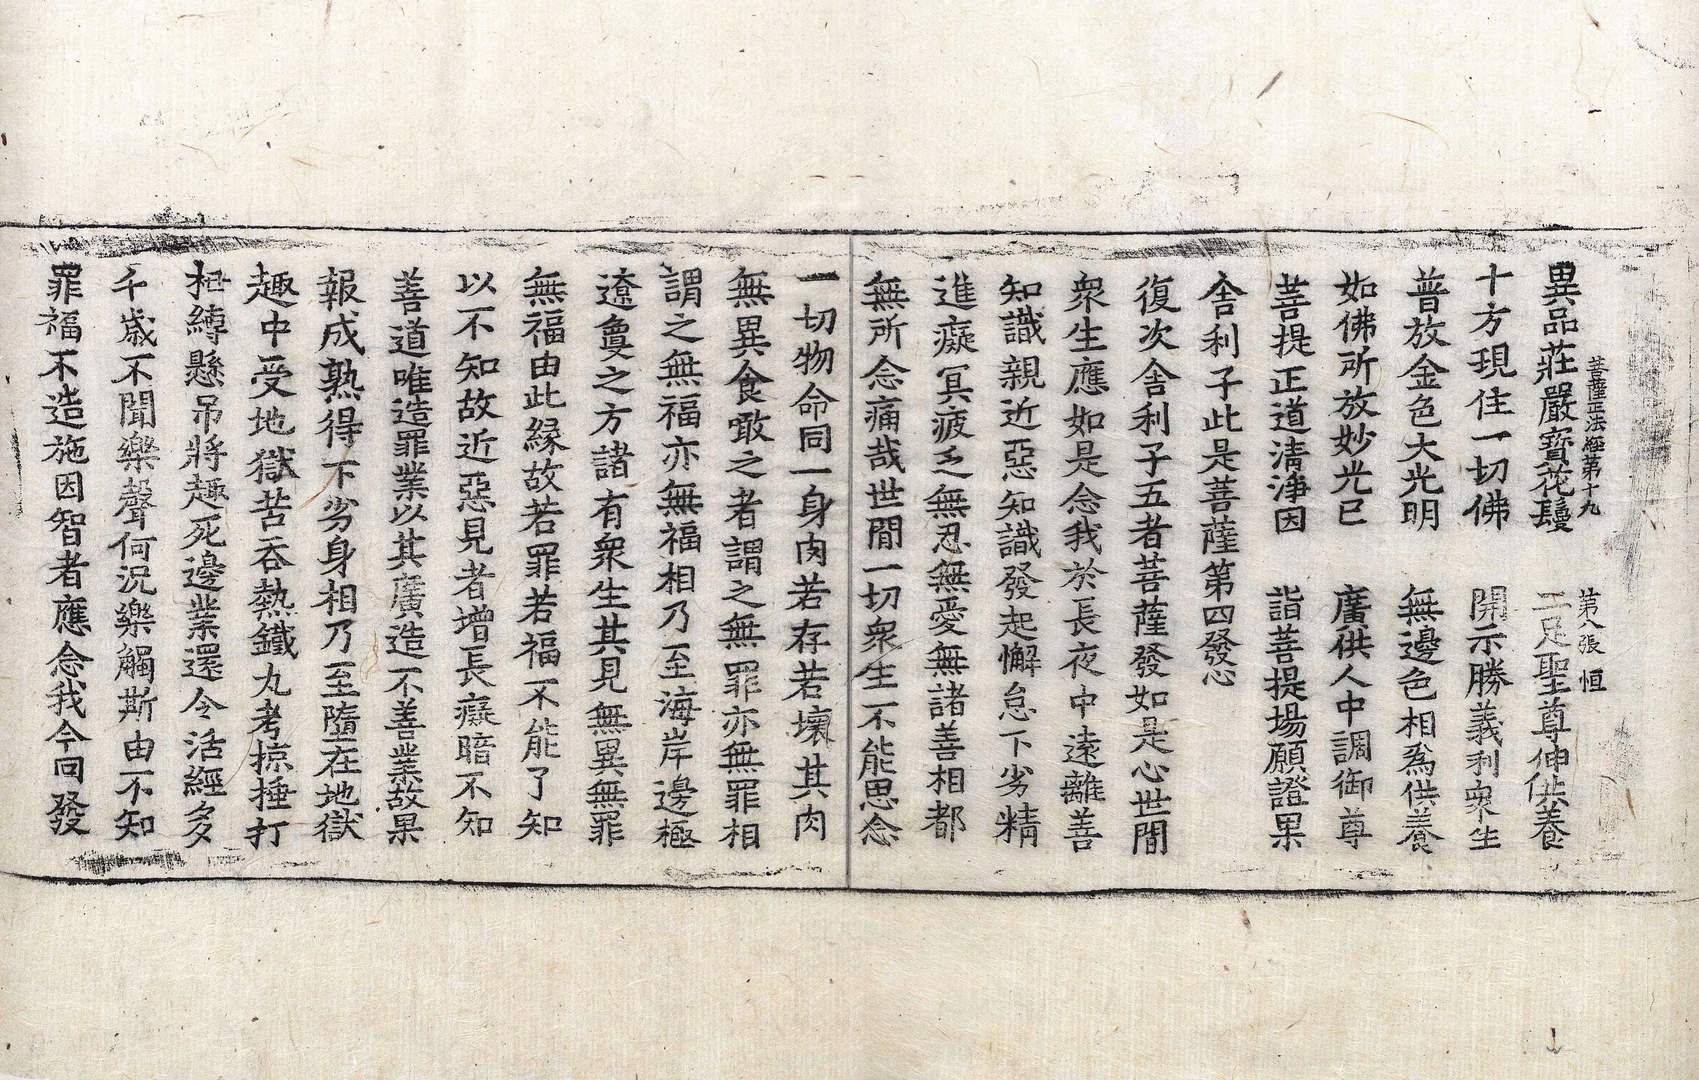 菩薩正法經第十九 第八張 恒
異品莊嚴寶花鬘 二足聖尊伸供養
十方現住一切佛 開示勝義利衆生
普放金色大光明 無邊色相爲供養
如佛所放妙光已 廣供人中調御尊
菩提正道清淨因 詣菩提場願證果
舍利子此是菩薩第四發心
復次舍利子五者菩薩發如是心世間
衆生應如是念我於長夜中遠離善
知識親近惡知識發起懈怠下劣精
進癡冥疲乏無忍無愛無諸善相都
無所念痛哉世間一切衆生不能思念
一切物命同一身肉若存若壞其肉
無異食噉之者謂之無罪亦無罪相
謂之無福亦無福相乃至海岸邊極
遼敻之方諸有衆生其見無異無罪
無福由此縁故若罪若福不能了知
以不知故近惡見者增長癡暗不知
善道唯造罪業以其廣造不善業故果
報成熟得下劣身相乃至墮在地獄
趣中受地獄苦吞熱鐵丸考掠捶打
杻縛懸吊將趣死邊業還令活經多
千歲不聞樂聲何況樂觸斯由不知
罪福不造施因智者應念我今回發